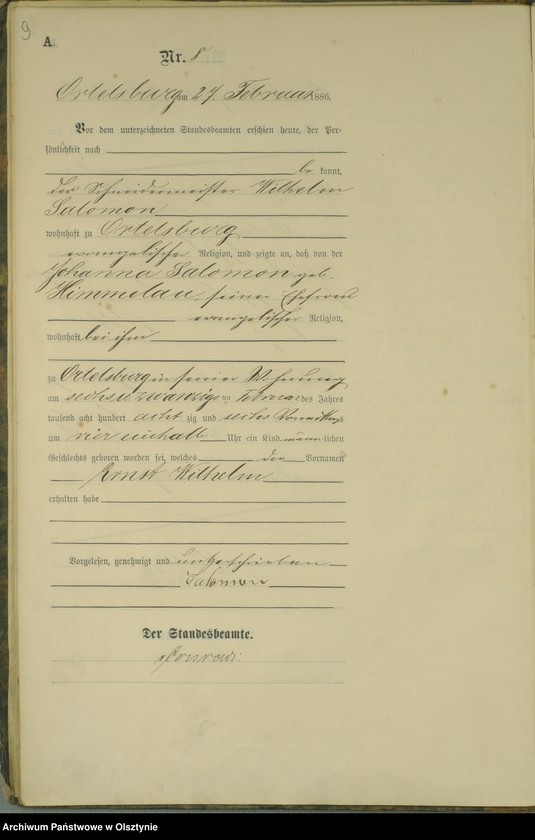 9
A.
Nr. 8
Ortelsburg am 27. Februar 1886.
Vor dem unterzeichneten Standesbeamten erschien heute, der Per-
sönlichkeit nach
be kannt,
der Schneidermeister Wilhelm
Salomon
wohnhaft zu Ortelsburg,
evangelischer Religion, und zeigte an, daß von der
Johanna Salomon geb.
Himmelau, seiner Ehefrau
evangelischer Religion,
wohnhaft bei ihm
zu Ortelsburg in seiner Wohnung
am sechsundzwanzigsten Februar des Jahres
tausend acht hundert achtzig und sechs Vormittags
um vier einhalb Uhr ein Kind männlichen
Geschlechts geboren worden sei, welches den Vornamen
Ernst Wilhelm
erhalten habe
Vorgelesen, genehmigt und unterschrieben
Salomon
Der Standesbeamte.
Conradi.
Archiwum Państwowe w Olsztynie